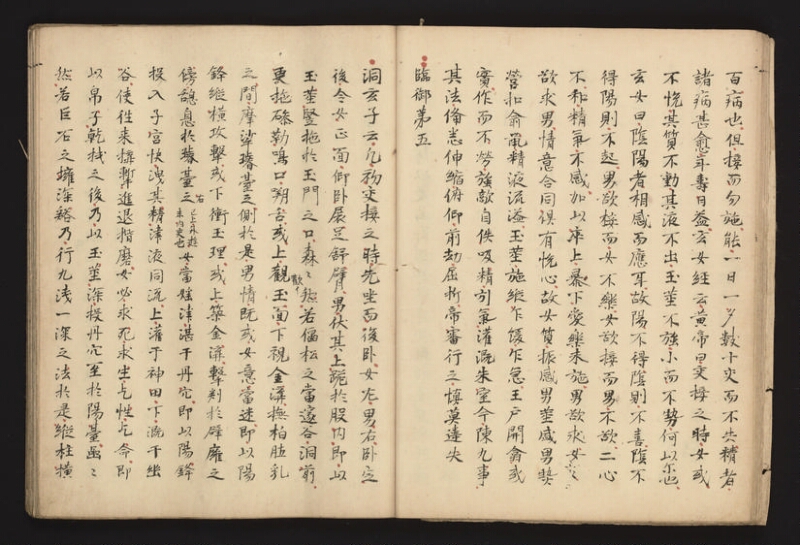 百病也但接而勿施能一日一夕數十交而不失精者
諸病甚愈年壽日益玄女經云黃帝曰交接之時女或
不悅其質不動其液不出玉莖不強小而不勢何以尔也
玄女曰陰陽者相感而應耳故陽不得陰則不喜陰不
得陽則不起男欲接而女不樂女欲接而男不欲二心
不和精氣不感加以卒上暴下愛樂未施男欲求女々
欲求男情意合同俱有悅心故女質振感男莖盛男勢
營扣俞鼠精液流溢玉莖施縱乍緩乍急玉戶開翕或
實作而不勞強敵自佚吸精引氣灌溉朱室今陳九事
其法備悉伸縮俯仰前却屈折帝審行之慎莫違失
臨御第五
洞玄子云凡初交接之時先坐而後卧女左男右卧定
後令女正面仰卧展足舒臂男伏其上跪於股内即以
玉莖竪拖於玉門之口森々然若偃松之當邃谷洞前
更拖磣勒鳴口嗍舌或上觀玉面下視金溝撫拍肚乳
之間摩挲璿臺之側於是男情既或女意當迷即以陽
鋒縱橫攻擊或下衝玉理或上築金溝擊刺於辟雍之
傍憩息於璿臺之右 以上外遊未内交也 女當婬津湛于丹穴即以陽鋒
投入子宮快洩其精津液同流上灌于神田下溉于幽
谷使往來擊進退揩磨女必求死求生乞性乞命即
以帛子乾拭之後乃以玉莖深投丹穴至於陽臺嵒々
然若巨石之擁深谿乃行九淺一深之法於是縱柱橫